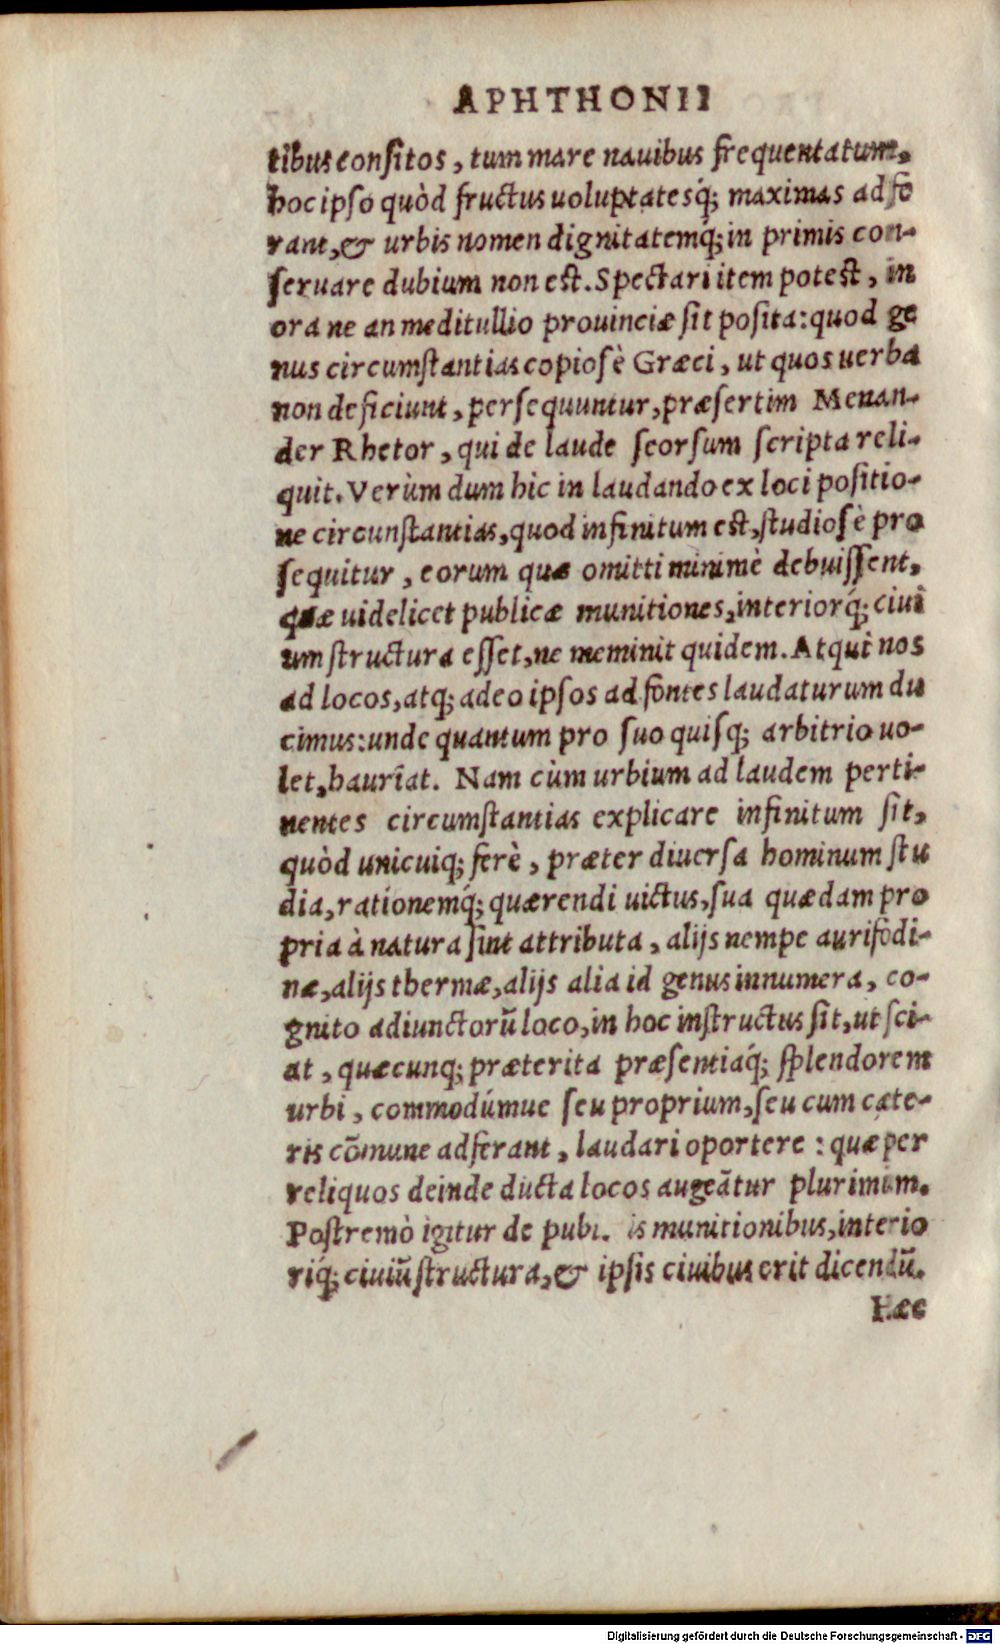 APHTHONII
tibus consitos, tum mare nauibus frequentatum,
hoc ipso quòd fructus uoluptatesq́; maximas adfe
rant, & urbis nomen dignitatemq́; in primis con-
seruare dubium non est. Spectari item potest, in
ora ne an meditullio prouinciæ sit posita: quod ge
nus circumstantias copiosè Græci, ut quos uerba
non deficiunt, persequuntur, præsertim Menan-
der Rhetor, qui de laude seorsum scripta reli-
quit. Verùm dum hic in laudando ex loci positio-
ne circunstantias, quod infinitum est, studiosè pro
sequitur, eorum quæ omitti minimè debuissent,
quæ uidelicet publicæ munitiones, interiorq́; ciui
um structura esset, ne meminit quidem. Atqui nos
ad locos, atq; adeo ipsos ad fontes laudaturum du
cimus: unde quantum pro suo quisq; arbitrio uo-
let, hauriat. Nam cùm urbium ad laudem perti-
nentes circumstantias explicare infinitum sit,
quòd unicuiq; ferè, præter diuersa hominum stu
dia, rationemq́; quærendi uictus, sua quædam pro
pria à natura sint attributa, alijs nempe aurifodi-
næ, alijs thermæ, alijs alia id genus innumera, co-
gnito adiunctorũ loco, in hoc instructus sit, ut sci-
at, quæcunq; præterita præsentiaq́; splendorem
urbi, commodúmue seu proprium, seu cum cæte-
ris cõmune adferant, laudari oportere: quæ per
reliquos deinde ducta locos augeãtur plurimum.
Postremò igitur de munitionibus, interio
riq́; ciuiũ structura, & ipsis ciuibus erit dicendũ.
Hæc
Digitalisierung gefördert durch die Deutsche Forschungsgemeinschaft - DFG